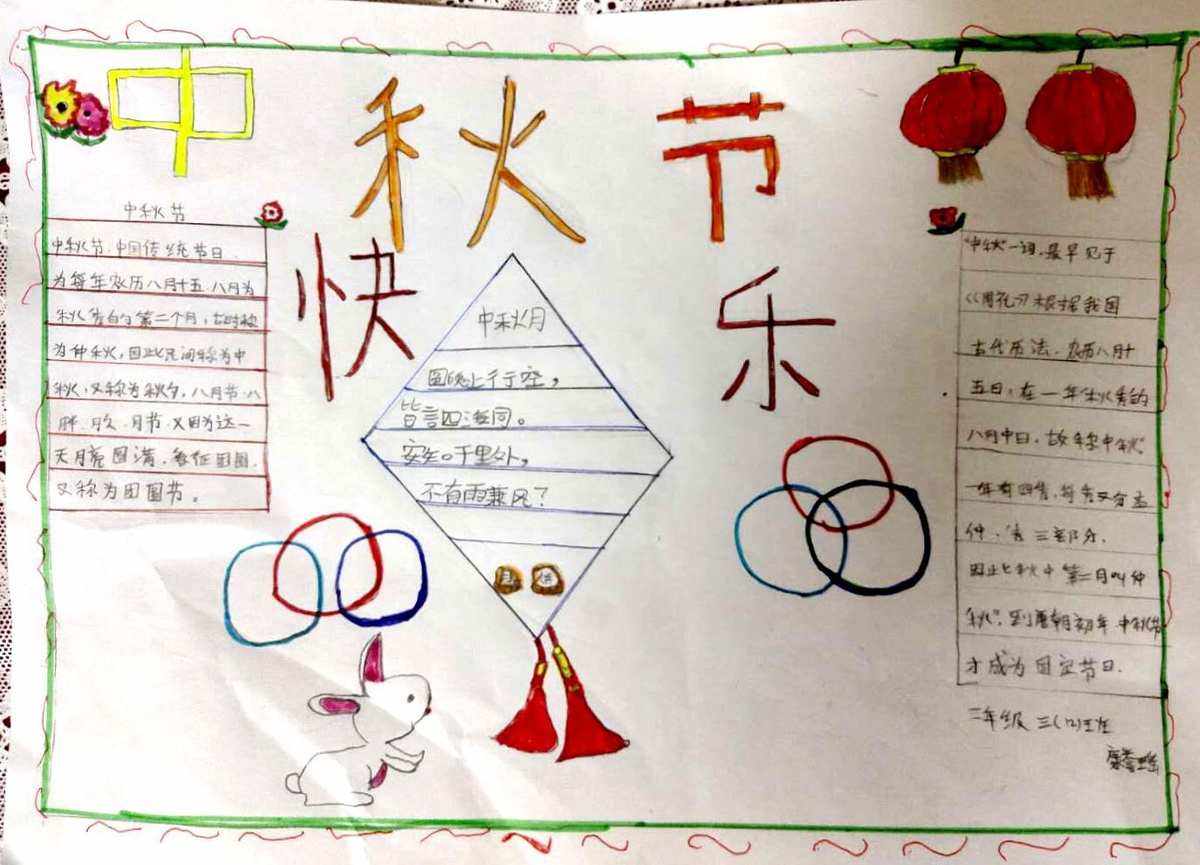 中秋节
快乐
中秋节
中秋节.中国传统节日.
为每年农历八月十五.八月为
秋季的第二个月,古时称
为仲秋,因此民间称为中
秋,又称为秋夕,八月节.八
月节.又因为这一
天月亮圆满.象征团圆.
又称为团圆节。
中秋月
圆魄上行空,
皆言四海同。
安知千里外,
不有雨兼风?
"中秋"一词,最早见于
《周礼》根据我国
古代历法.农历八月十
五日,在一年秋季的
八月中日.故称中秋"
一年有四季,每季又分孟
仲.季三部分.
因此秋中第二月叫仲
秋".到唐朝初年.中秋节
才成为固定节日.
三年级 三(12)班